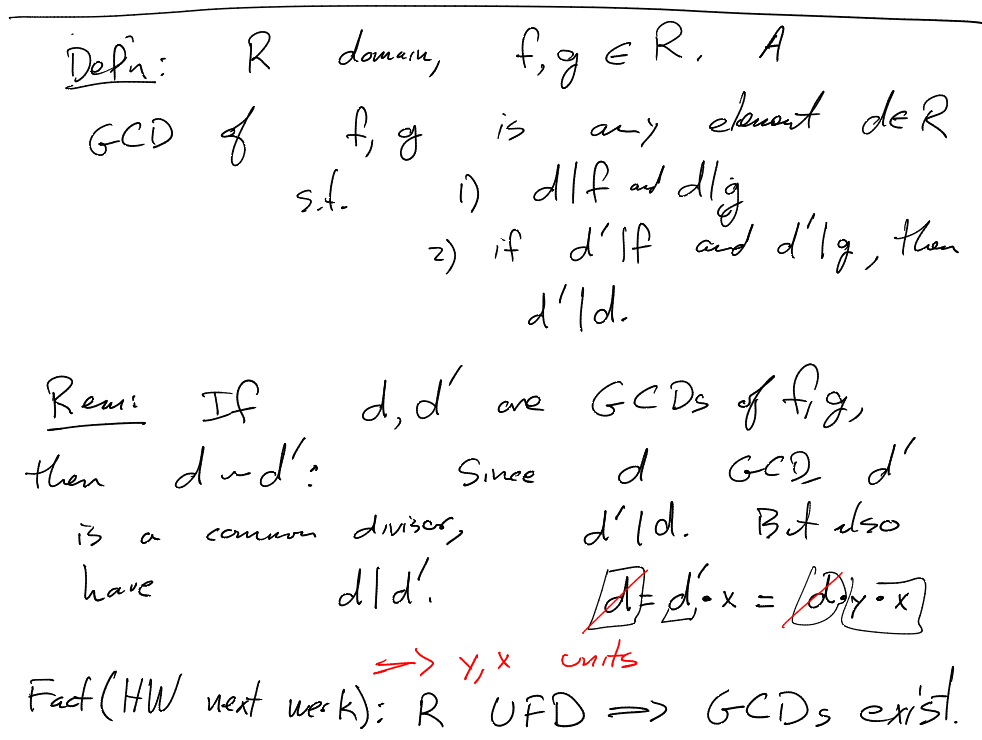 Defn: R domain, f, g ∈ R. A
GCD of f, g is any element d∈R
s.t. 1) d|f and d|g
2) if d'|f and d'|g, then
d'|d.
Rem: If d, d' are GCDs of f, g,
then d ~ d': Since d GCD, d'
is a common divisor, d'|d. But also
have d|d'. d = d' · x = d · y · x
=> y, x units
Fact (HW next week): R UFD => GCDs exist.